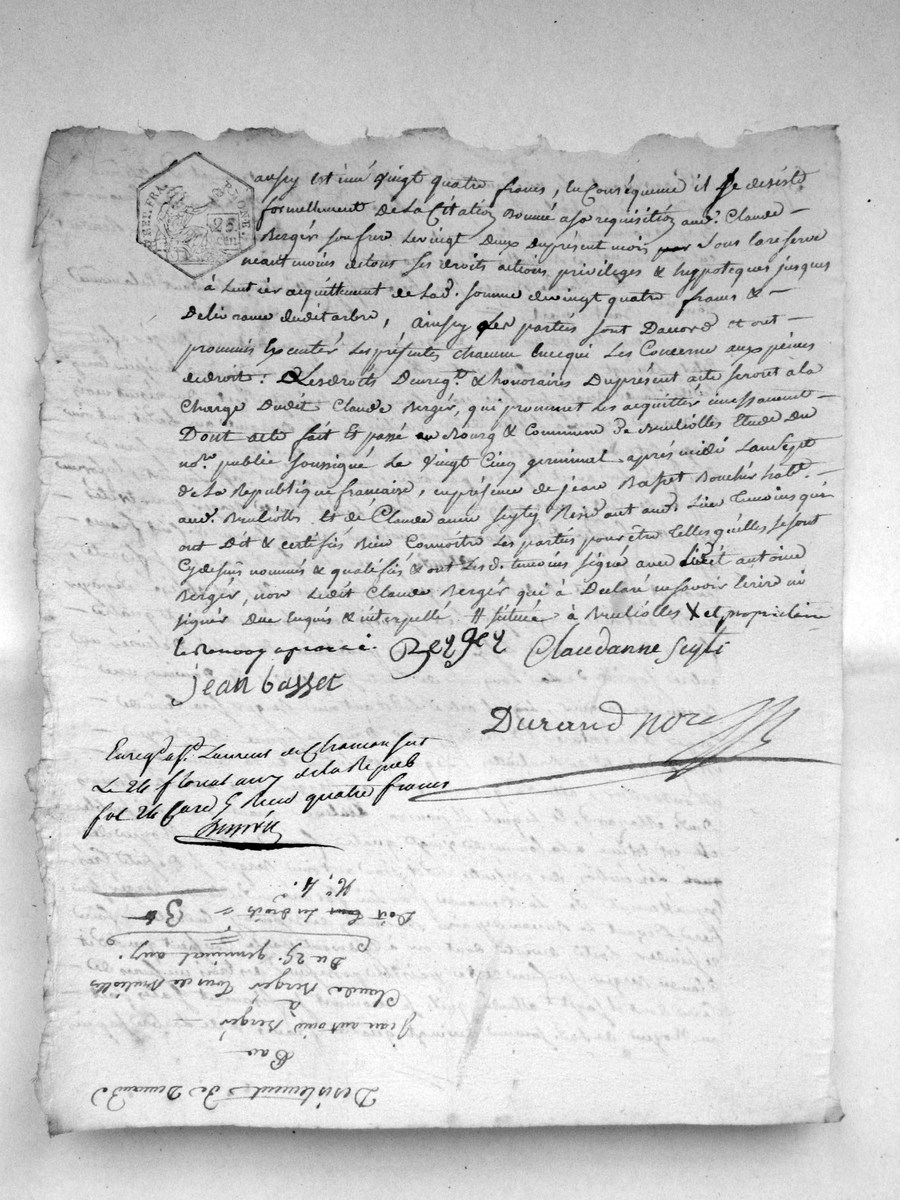 REP. FRA.
RHONE.
25
CEN
ansey est imé vingt quatre francs, En Conséquence il se desiste
formellement de la Citation Donnée a sa requisition aud. Claude
Berger son frere Le vingt Deux Du présent mois sous la reserve
neantmoins de tous ses droits actions, privileges & hyppoteques jusques
à Lentier acquittement de lad. somme de vingt quatre francs &
Delivrance dudit arbre, ainsy Les parties sont Daccord et ont
promis Executer Les présentes chacune En ce qui Les Concerne aux peines
de droit : Les droits Denregt. & honoraires Du présent acte seront a la
Charge Dudit Claude Berger, qui promet Les acquitter incessament
Dont acte fait Et passé au Bourg & Commune De Brulliolles Etude Du
nore. public soussigné Le Vingt Cinq germinal après midi Lan Sept
de La Republique francaise, en présence de jean Basset Boucher habt.
aud. Brulliolles Et de Claude anne Seyty Resident aud. Lieu temoins qui
ont Dit & certifiés bien Connoitre Les parties pour être telles quelles se sont
Cy dessus nommés & qualifiés & ont Les dits temoins signé avec Ledit antoine
Berger, non Ledit Claude Berger qui à Declaré ne savoir Ecrire ni
signer Due Enquis & interpellé # située à Brulliolles X et proprietaire
Le Renvoy aprouvé.
Claudanne Seyti
jean basset
Durand nore
Enregé a St. Laurent de Chamousset
Le 24 floreal an 7 de la Repub
fol 24 Case 5 Reçu quatre francs
Desistement De Demande
Par
Jean antoine Berger
à
Claude Berger Tous de Brulliolles
Du 25. germinal an 7.
Doit Les droits = 3
No. 4.